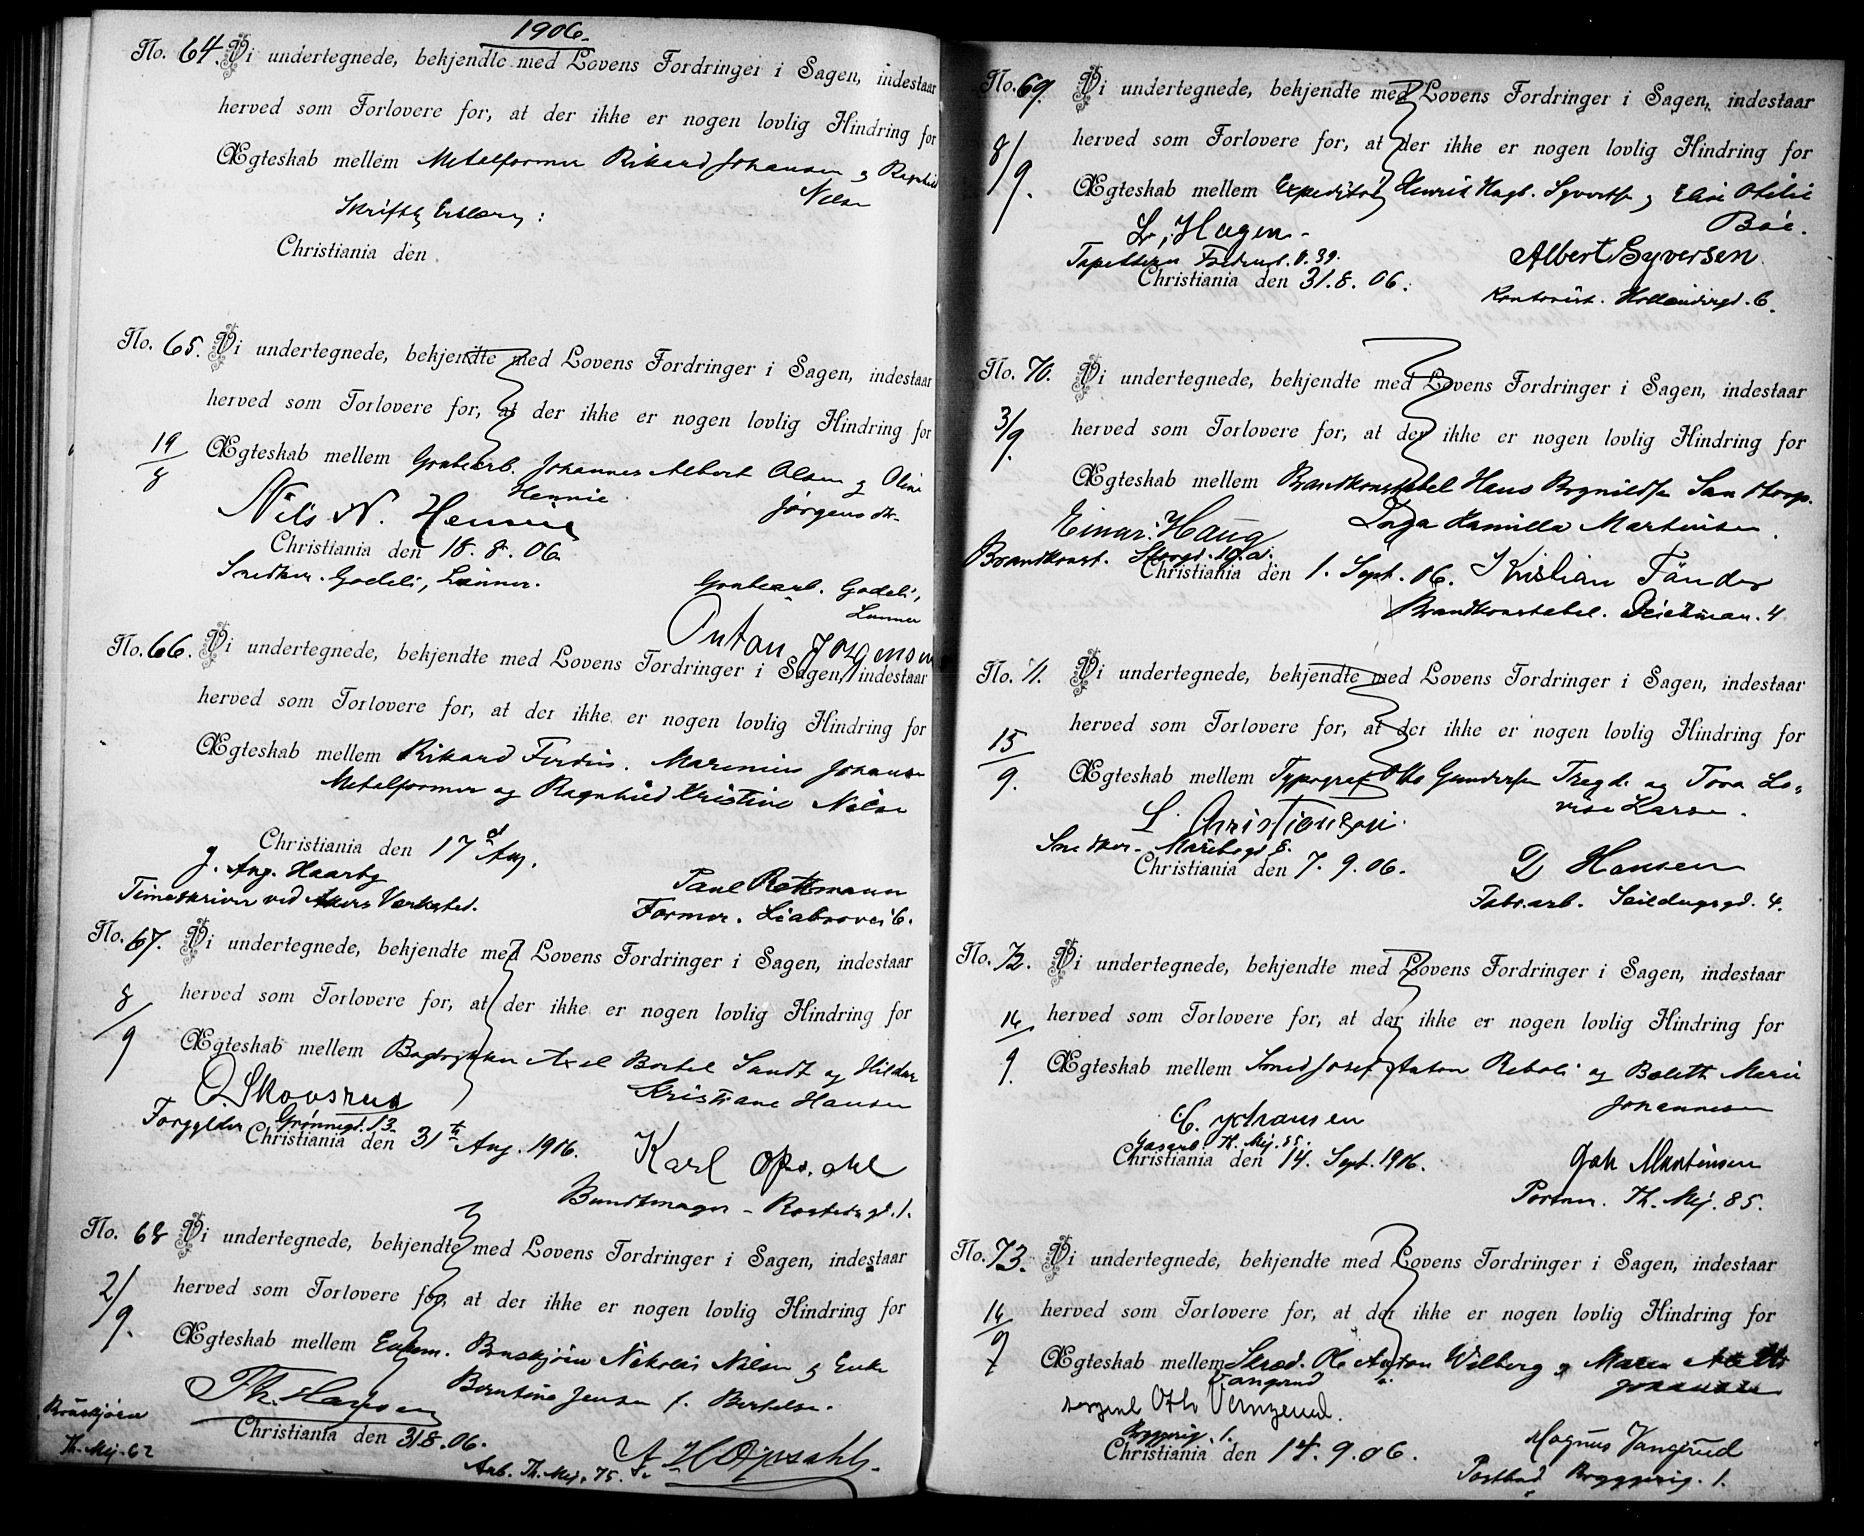 1906.
No. 64. Vi undertegnede, bekjendte med Lovens Fordringer i Sagen, indestaar
herved som Forlovere for, at der ikke er nogen lovlig Hindring for
Ægteskab mellem Metalformer Rikard Johansen og Ragnhild
Nilsen
Skriftlig Erklæring:
Christiania den
No. 65. Vi undertegnede, bekjendte med Lovens Fordringer i Sagen, indestaar
herved som Forlovere for, at der ikke er nogen lovlig Hindring for
19/8
Ægteskab mellem Grubearb. Johannes Albert Olsen og Oline
Hennie Jørgensdtr.
Nils N. Hennie
Christiania den 18. 8. 06.
Snedker. Godeli, Lunner.
Grubearb. Godeli,
Lunner
Anton Jorgensen
No. 66. Vi undertegnede, bekjendte med Lovens Fordringer i Sagen, indestaar
herved som Forlovere for, at der ikke er nogen lovlig Hindring for
Ægteskab mellem Rikard Ferdin. Marenius Johansen
Metalformer og Ragnhild Kristine Nilsen
Christiania den 17d Aug.
J. Aug. Haarby
Timeskriver ved Akers Værksted.
Paul Rottmann
Former. Liabrovei 6.
No. 67. Vi undertegnede, bekjendte med Lovens Fordringer i Sagen, indestaar
herved som Forlovere for, at der ikke er nogen lovlig Hindring for
8/9
Ægteskab mellem Bogtrykker Axel Bertel Sandt og Hildur
Kristiane Hansen
O Skovsrud
Forgylder Grønnegd. 13.
Christiania den 31te Aug. 1906.
Karl Opsahl
Bundtmager - Rostedsgd. 1.
No. 68 Vi undertegnede, bekjendte med Lovens Fordringer i Sagen, indestaar
herved som Forlovere for, at der ikke er nogen lovlig Hindring for
2/9.
Ægteskab mellem Enkem. Brusekjører Nikolai Nilsen og Enke
Berntine Jensen f. Bertelsen.
Th. Hansen
Brusekjører
Th. Mej. 62
Christiania den 31 8. 06.
Arb. Th. Mej. 75.
A. H Opsahl.
No. 69. Vi undertegnede, bekjendte med Lovens Fordringer i Sagen, indestaar
herved som Forlovere for, at der ikke er nogen lovlig Hindring for
8/9.
Ægteskab mellem Expeditør Henrik Hagb. Syvertsen og Elise Otilie
Boe.
L. Hagen
Tapetserer
Albert Syversen
Christiania den 31. 8. 06.
Kontorist. Hollændergd. 6.
No. 70. Vi undertegnede, bekjendte med Lovens Fordringer i Sagen, indestaar
herved som Forlovere for, at der ikke er nogen lovlig Hindring for
3/9.
Ægteskab mellem Brandkonstabel Hans Brynildsen Sandtorp.
Inga Kamilla Martinsen.
Einar Haug
Brandkonst. Storgd. 10.a.
Christiania den 1. Sept. 06. Kristian Tander
Brandkonstabel. Deichman. 4
No. 71. Vi undertegnede, bekjendte med Lovens Fordringer i Sagen, indestaar
herved som Forlovere for, at der ikke er nogen lovlig Hindring for
15/9.
Ægteskab mellem Typograf Otto Gundersen Tregde og Tora Lo-
vise Larsen.
L. Christiansen.
Snedker. Maribogd 8.
Christiania den 7. 9. 06.
D Hansen
Fabr.arb. Seildugsgd. 4.
No. 72. Vi undertegnede, bekjendte med Lovens Fordringer i Sagen, indestaar
herved som Forlovere for, at der ikke er nogen lovlig Hindring for
16/9.
Ægteskab mellem Smed Josef Anton Reboli og Bolette Marie
Johannesen
C. Johansen
Gasarb. Th. Mej. 85.
Christiania den 14. Sept. 1906.
Joh Martinsen
Portner. Th. Mej. 85.
No. 73. Vi undertegnede, bekjendte med Lovens Fordringer i Sagen, indestaar
herved som Forlovere for, at der ikke er nogen lovlig Hindring for
16/9
Ægteskab mellem Skræd. Ole Anton Wilberg og Maren
Vangerud Johansen
Otto Vangerud.
Bryggerig. 1.
Christiania den 14. 9. 06.
Magnus Vangerud
Postbud Bryggerig. 1.